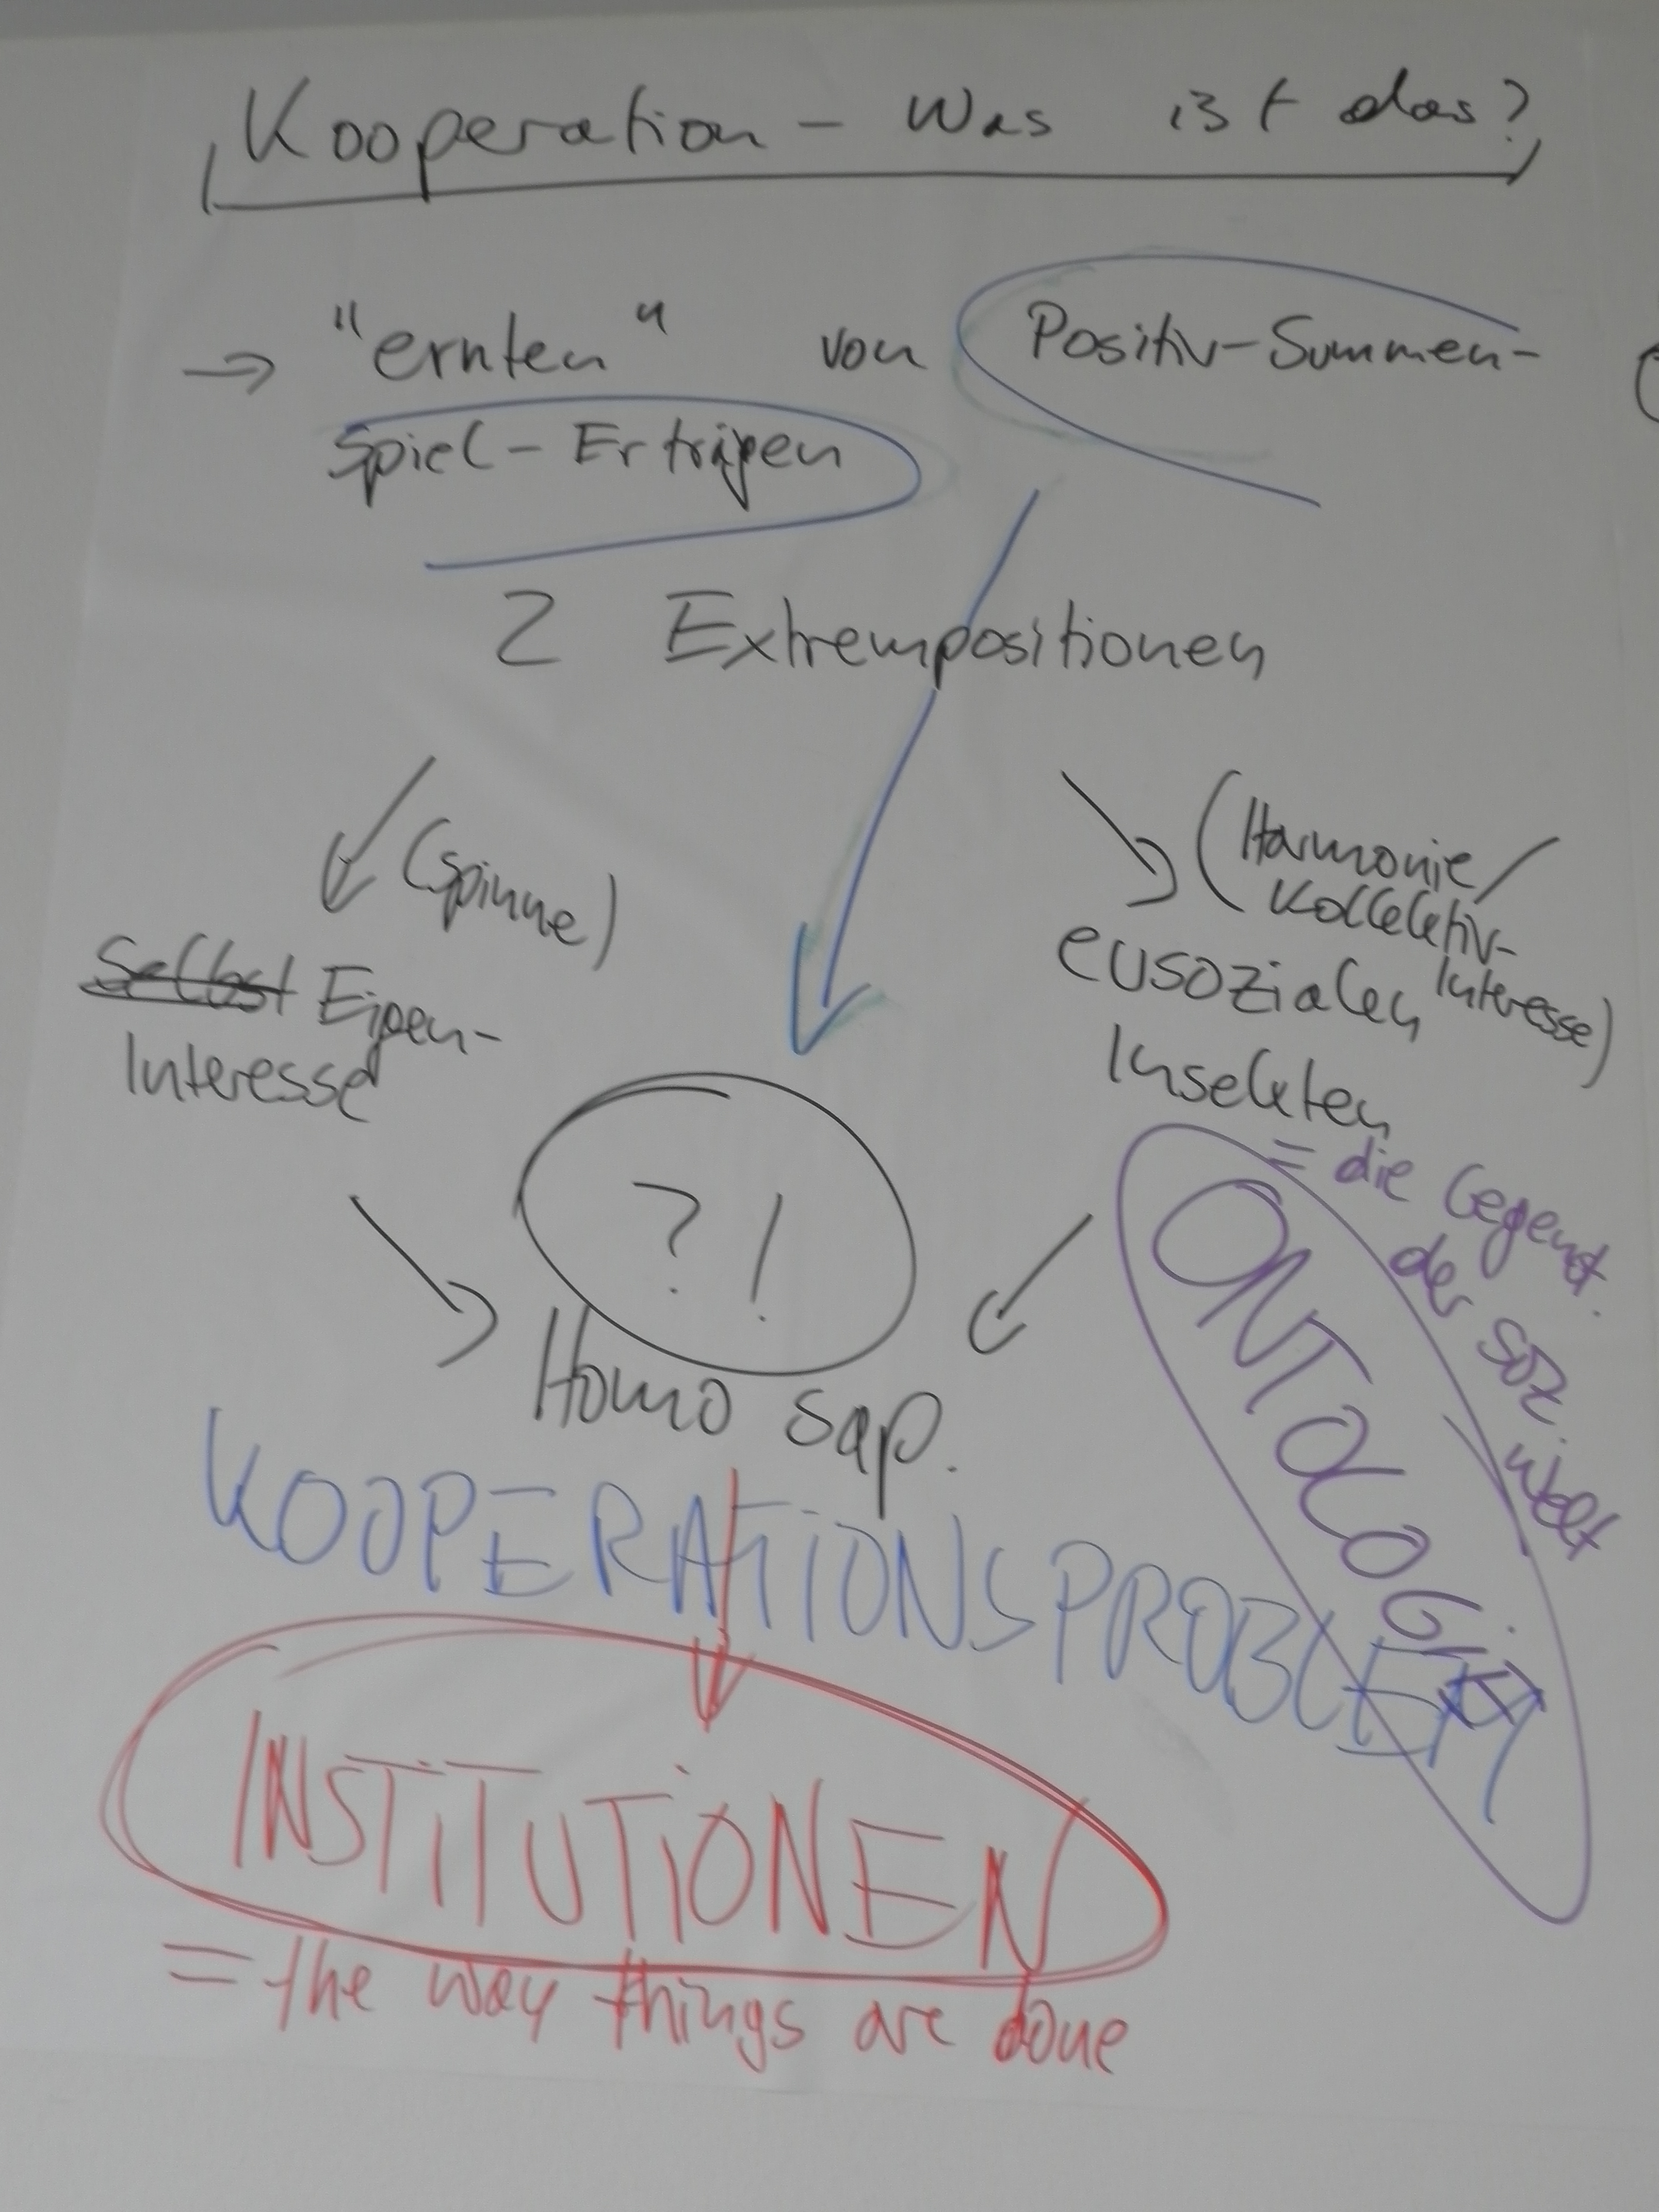 Kooperation – Was ist das?
→ "ernten" von Positiv-Summen-
Spiel-Erträgen
2 Extrempositionen
(Spinne)
Selbst Eigen-
Interesse
(Harmonie/
Kollektiv-
Interesse)
eusozialen
Insekten
?!
Homo sap.
= die Gegenst.
der soz.
Welt
ONTOLOGIE
KOOPERATIONSPROBLEM
INSTITUTIONEN
= the way things are done